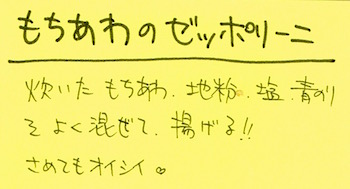 もちあわのゼッポリーニ
炊いた もちあわ、地粉、塩、青のり
をよく混ぜて、揚げる!!
さめてもオイシイ♡